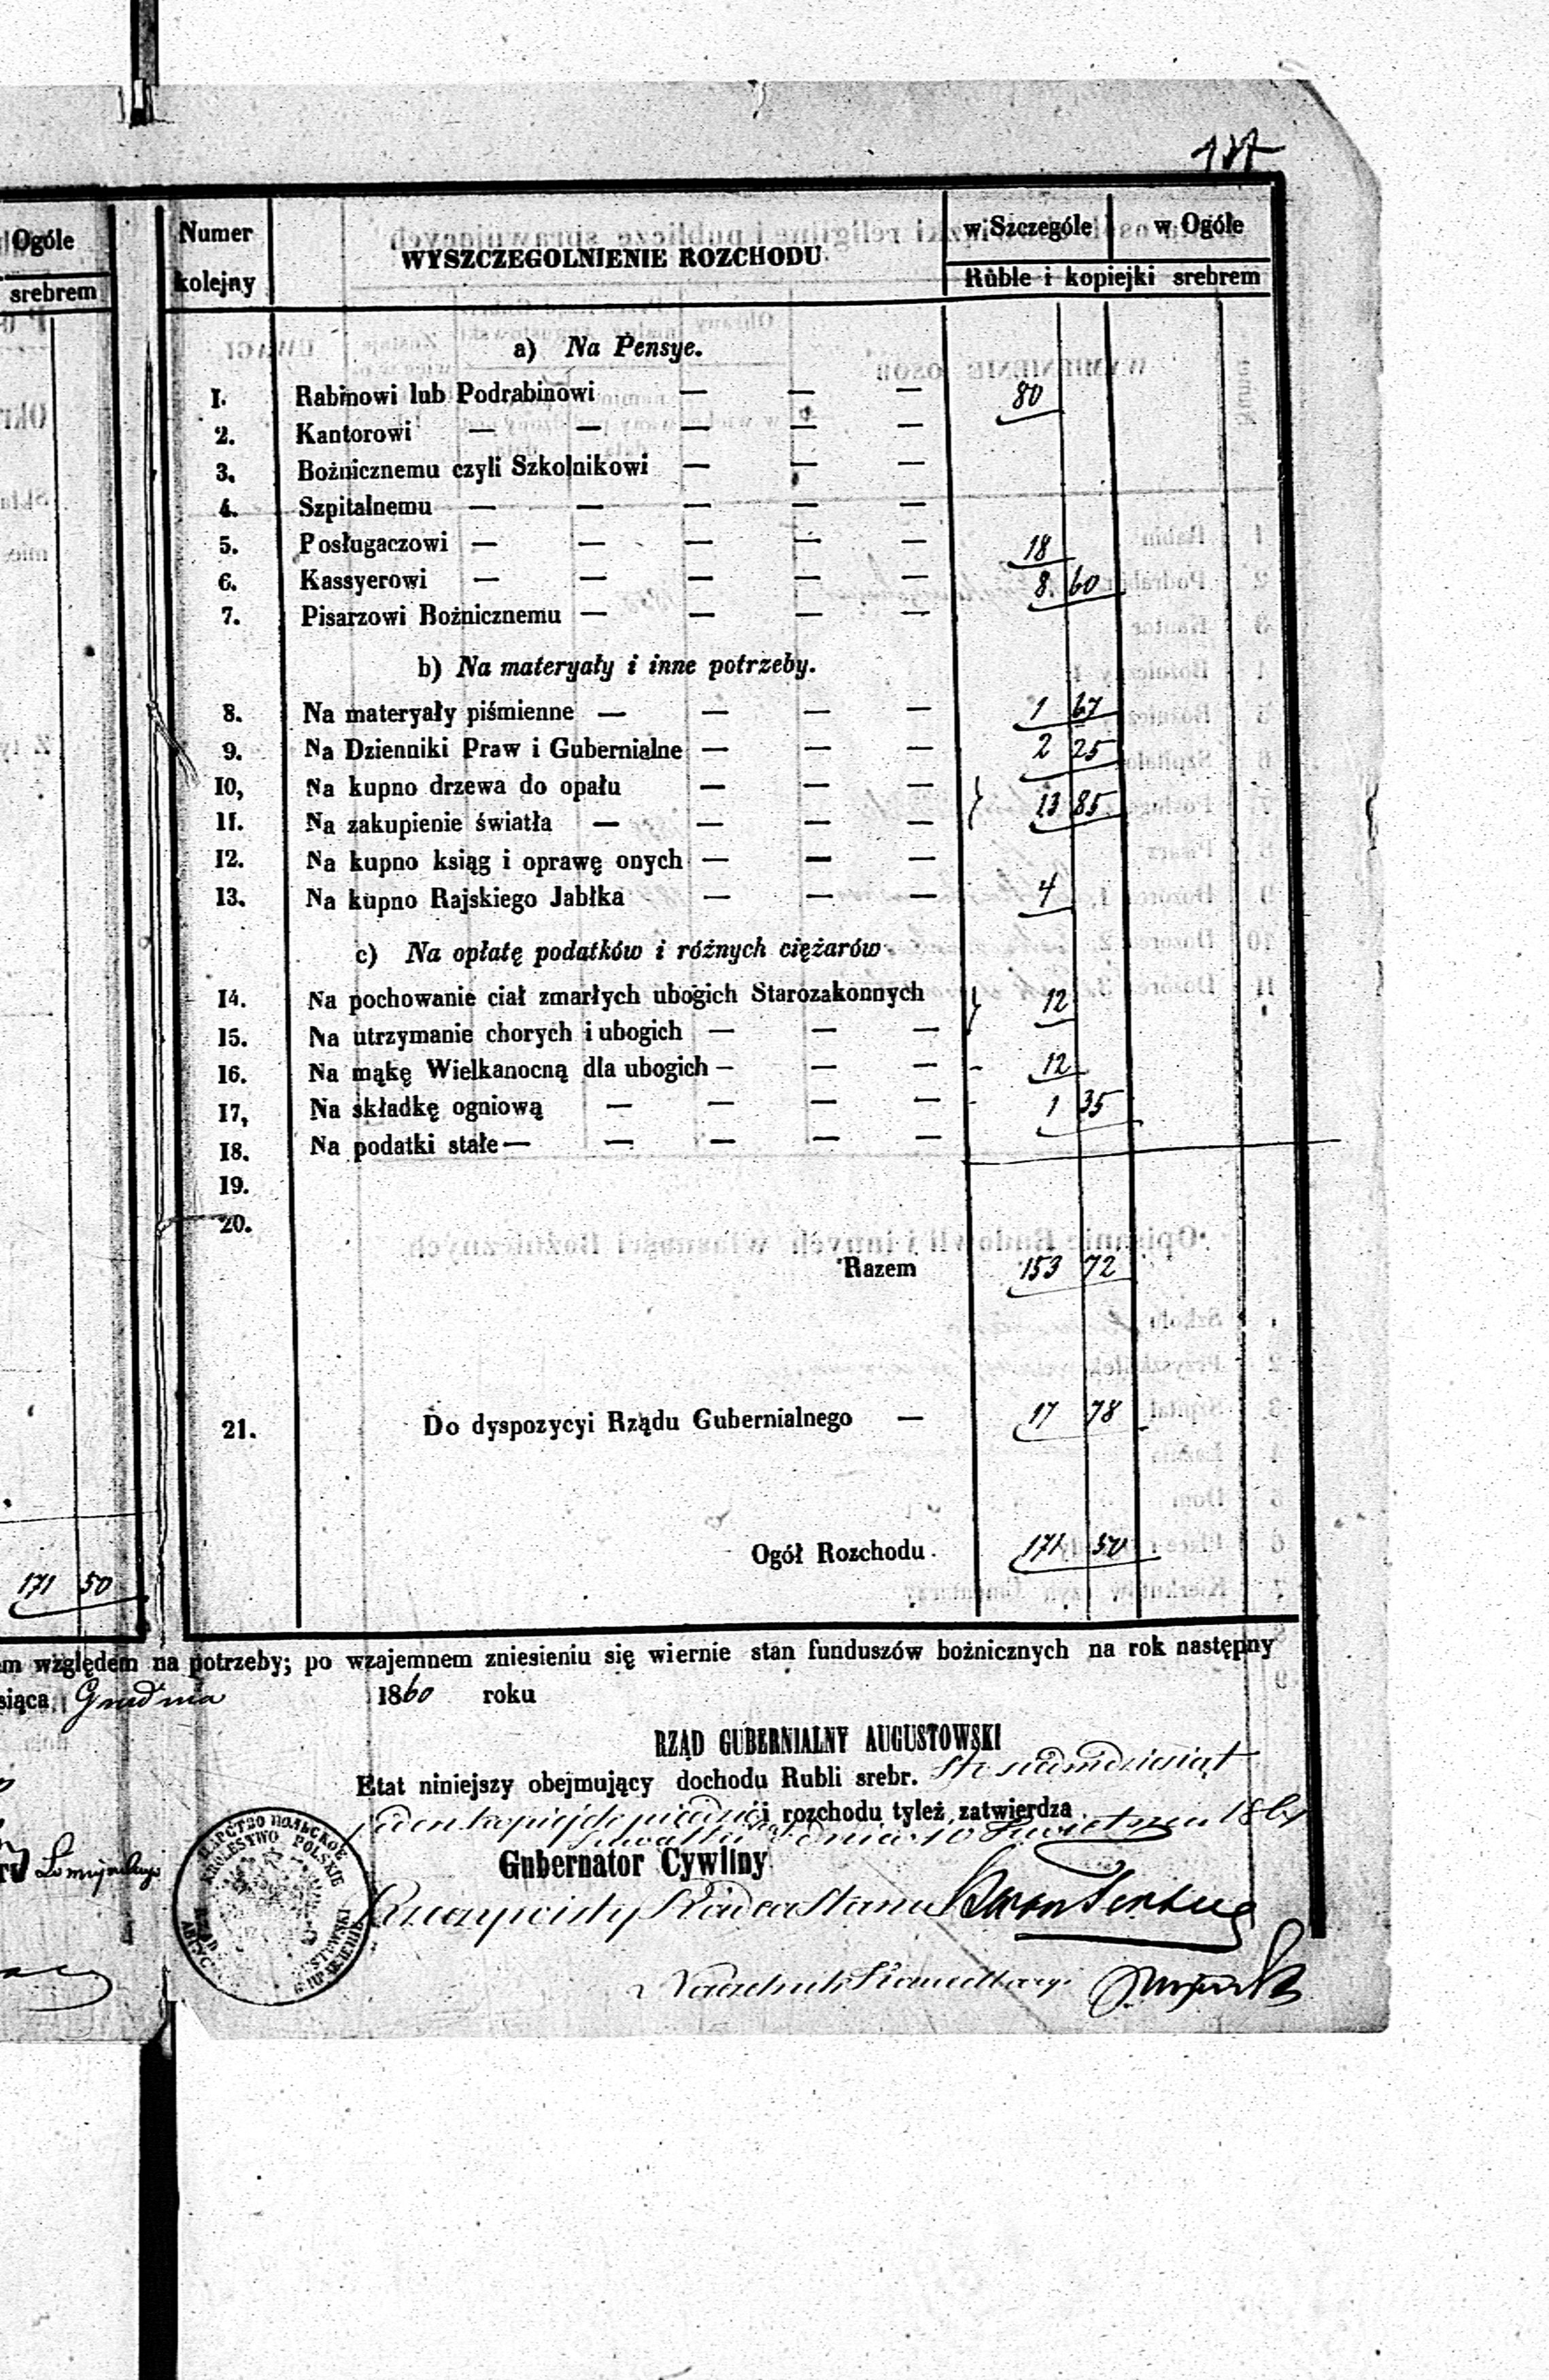 137
Ogóle
srebrem
Numer kolejny
WYSZCZEGOLNIENIE ROZCHODU
w Szczególe w Ogóle
Ruble i kopiejki srebrem
a) Na Pensye.
1. Rabinowi lub Podrabinowi — — — 80
2. Kantorowi — — — — —
3. Bożnicznemu czyli Szkolnikowi — — —
4. Szpitalnemu — — — — —
5. Posługaczowi — — — — — 18
6. Kassyerowi — — — — — 8. 60
7. Pisarzowi Bożnicznemu — — — —
b) Na materyały i inne potrzeby.
8. Na materyały piśmienne — — — — 1 67
9. Na Dzienniki Praw i Gubernialne — — — 2 25
10, Na kupno drzewa do opału — — —
11. Na zakupienie światła — — — — } 13 85
12. Na kupno ksiąg i oprawę onych — — —
13. Na kupno Rajskiego Jabłka — — — 4
c) Na opłatę podatków i różnych ciężarów.
14. Na pochowanie ciał zmarłych ubogich Starozakonnych
15. Na utrzymanie chorych i ubogich — — — } 12
16. Na mąkę Wielkanocną dla ubogich — — — - 12
17, Na składkę ogniową — — — — - 1 35
18. Na podatki stałe — — — — —
19.
20.
Razem 153 72
21. Do dyspozycyi Rządu Gubernialnego — 17 78
Ogół Rozchodu. 171 50
171 50
em względem na potrzeby; po wzajemnem zniesieniu się wiernie stan funduszów bożnicznych na rok następny
siąca Grudnia 1860 roku
RZĄD GUBERNIALNY AUGUSTOWSKI
Etat niniejszy obejmujący dochodu Rubli srebr. Sto siedmdziesiąt
jeden kopiejek pięćdzie i rozchodu tyleż zatwierdza
Suwałki dnia 10 Kwietnia 1861
Gubernator Cywilny
Rzeczywisty Radca Stanu
Naczelnik Kancellaryi
ЦАРСТВО ПОЛЬСКОЕ
KRÓLESTWO POLSKIE